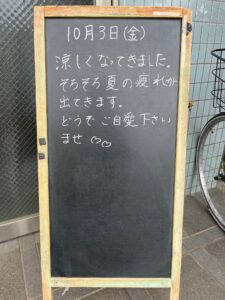 10月3日(金)
涼しくなってきました。
そろそろ夏の疲れが
出てきます。
どうぞご自愛下さい
ませ